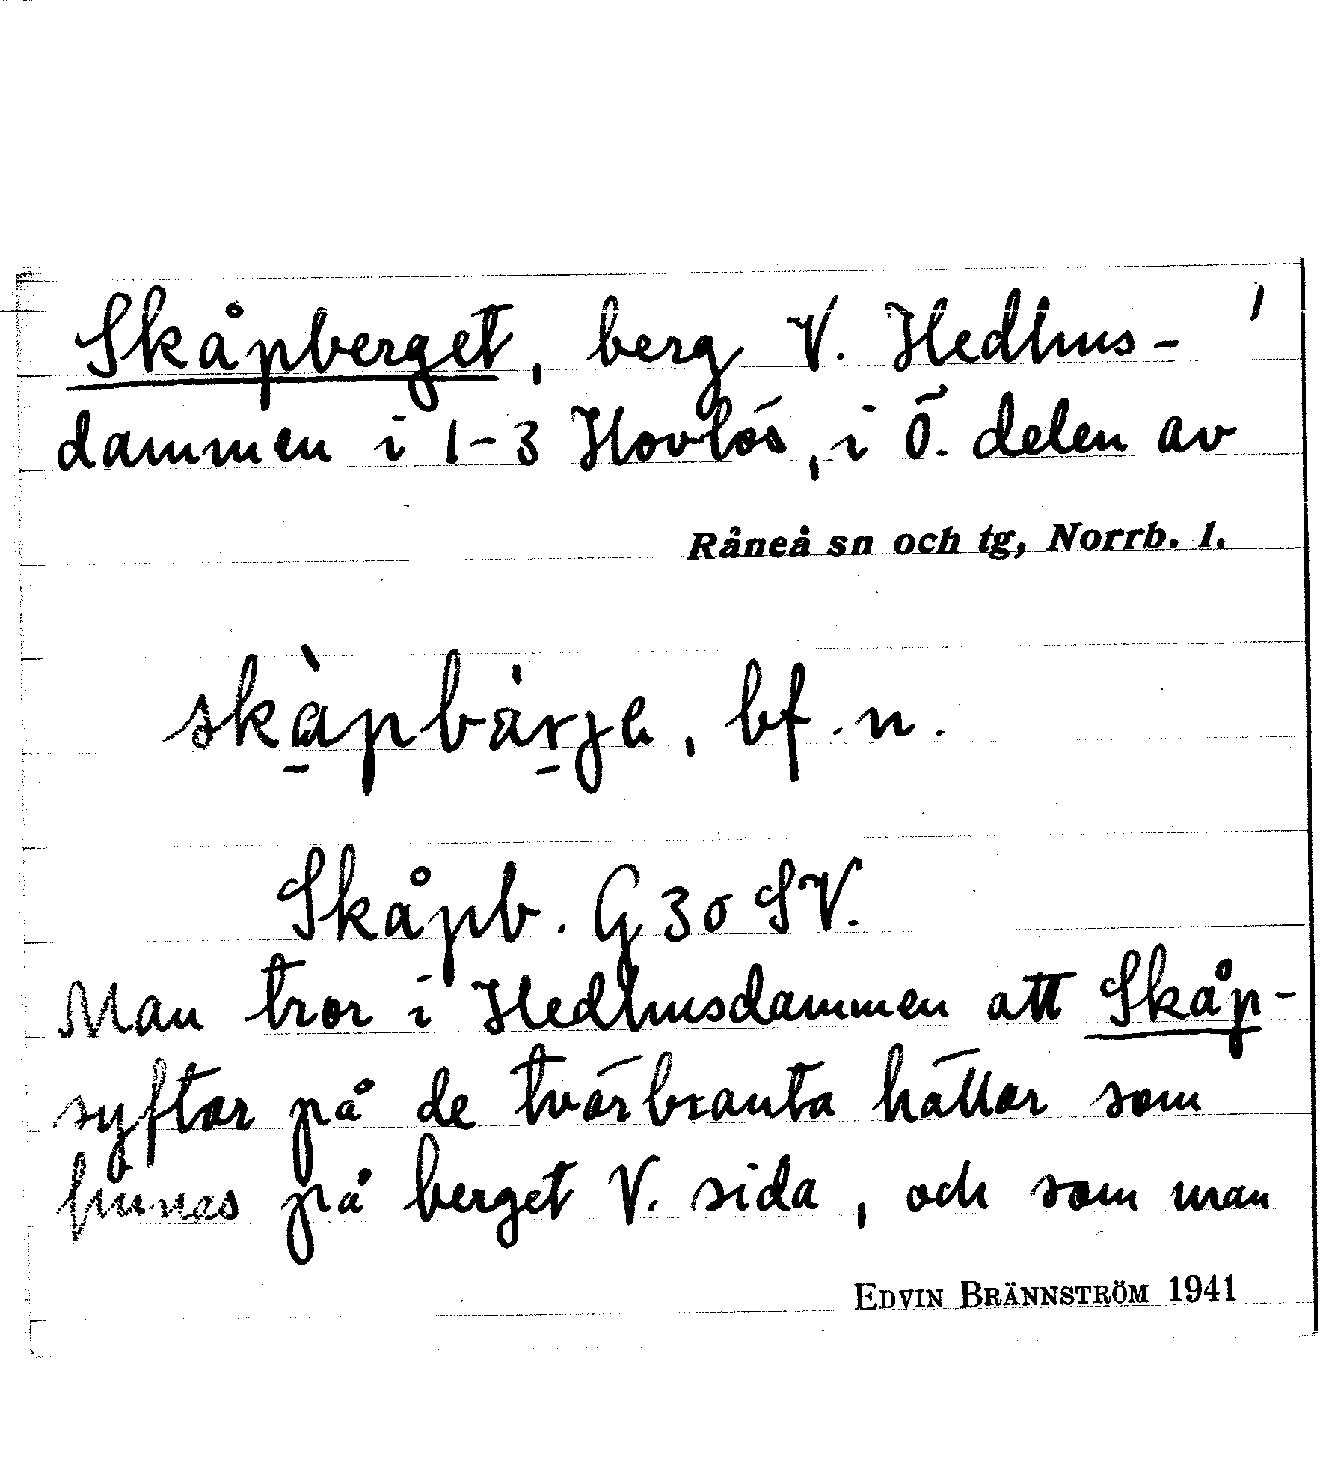 Skåpberget, berg V. Hedhus- 1
dammen i 1-3 Hovlös, i Ö. delen av
Råneå sn och tg, Norrb. l.
bf. n.
Skåpb. G 30 SV.
Man tror i Hedhusdammen att Skåp-
syftar på de tvärbranta hällar som
finnas på berget V. sida, och som man
EDVIN BRÄNNSTRÖM 1941